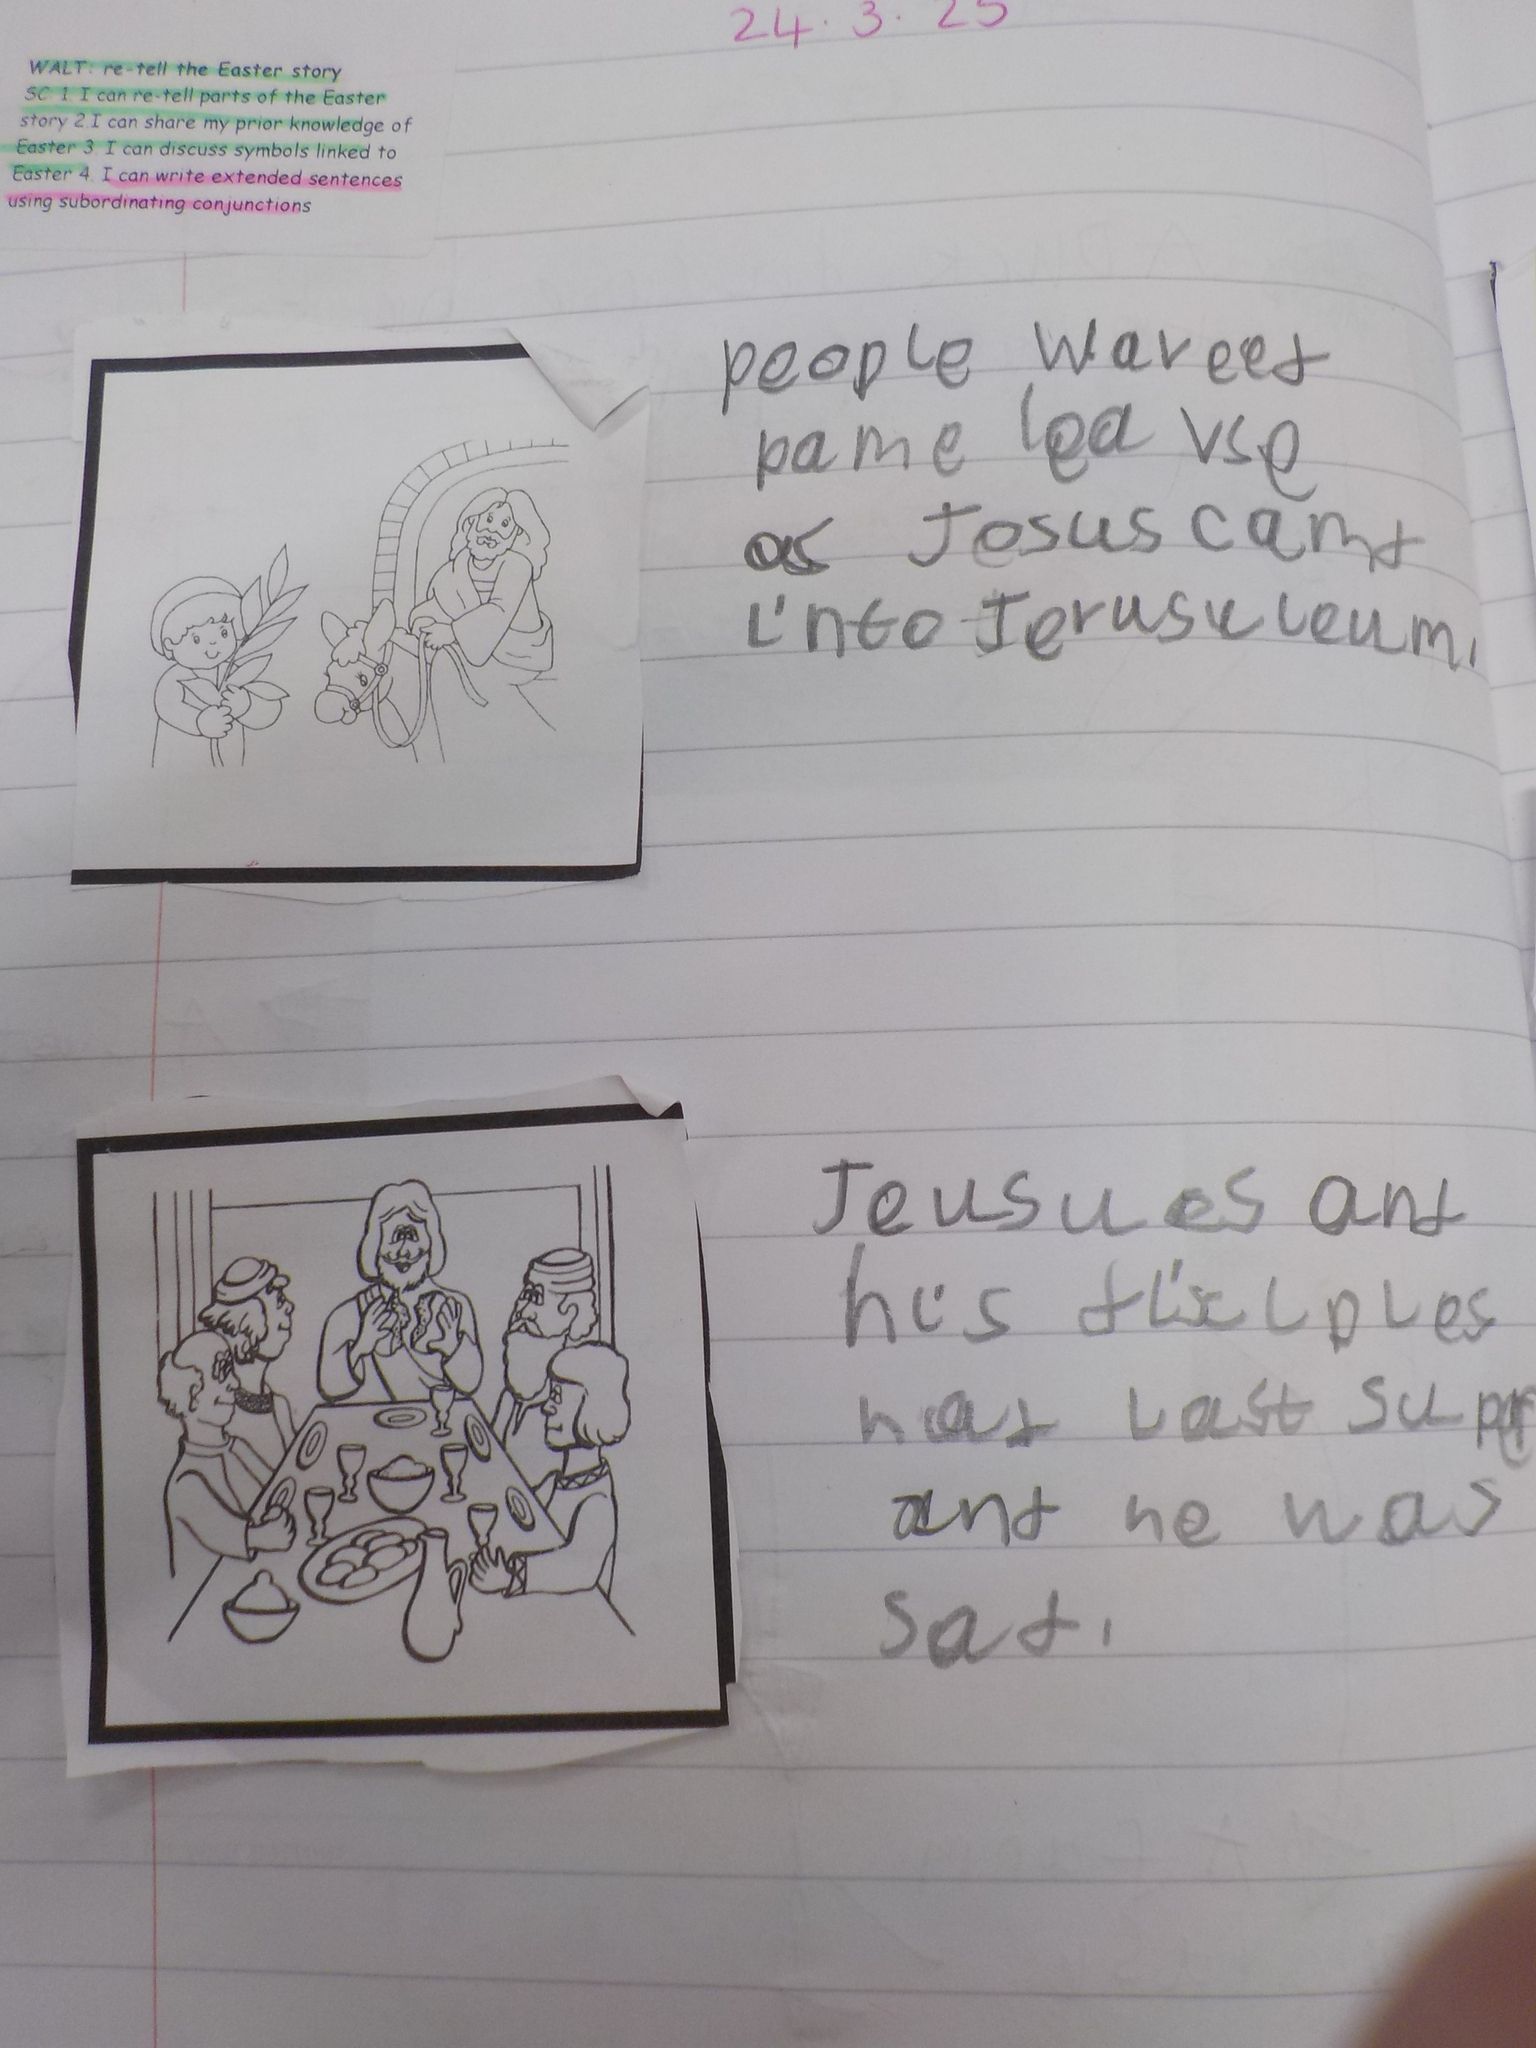 24.3.25
WALT: re-tell the Easter story
SC 1. I can re-tell parts of the Easter
story 2.I can share my prior knowledge of
Easter 3. I can discuss symbols linked to
Easter 4. I can write extended sentences
using subordinating conjunctions
people waveed
pame leavse
as Jesus camd
into Jerusuleum.
Jeusues and
his
had last
and he was
sad.